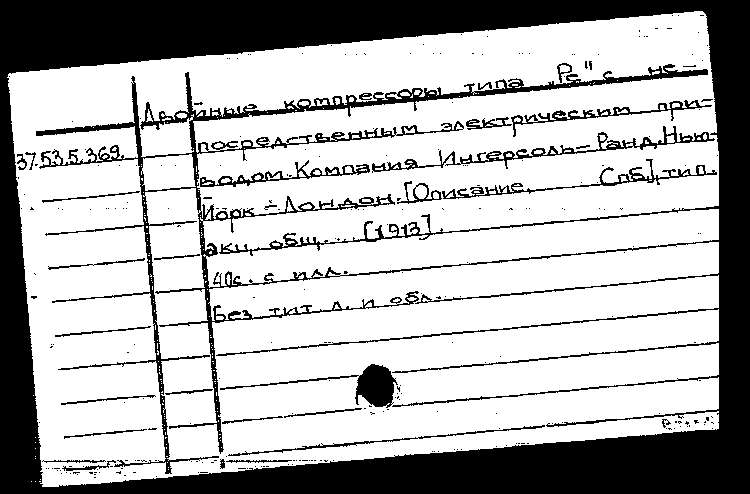 Двойные компрессоры типа „Ре" с не-
37.53.5.369. посредственным электрическим при-
водом. Компания Ингерсоль-Ранд. Нью-
Йорк - Лондон. [Описание. Спб.], тип.
акц. общ. ... [1913].
40с. с илл.
Без тит. л. и обл.